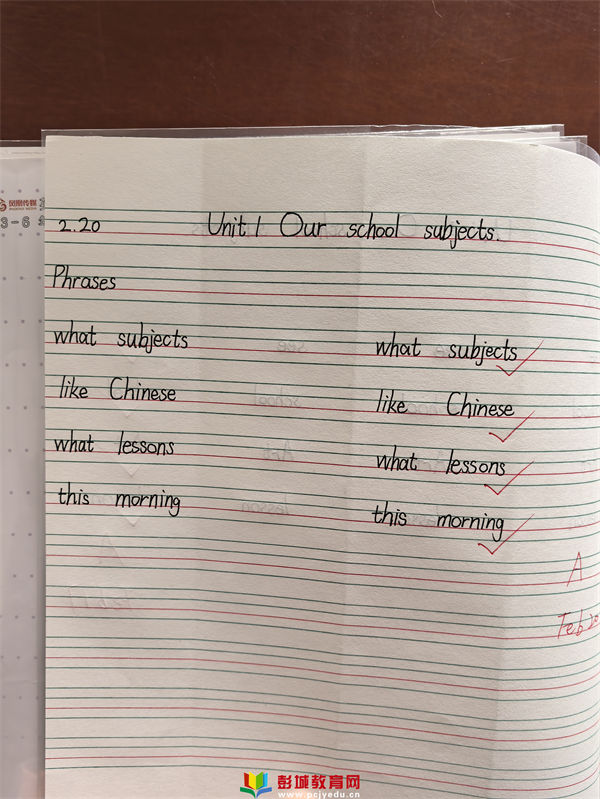 凤凰传媒
3-6
2.20 Unit 1 Our school subjects.
Phrases
what subjects what subjects
like Chinese like Chinese
what lessons what lessons
this morning this morning
A
Feb 20
彭城教育网
www.pcjyedu.cn